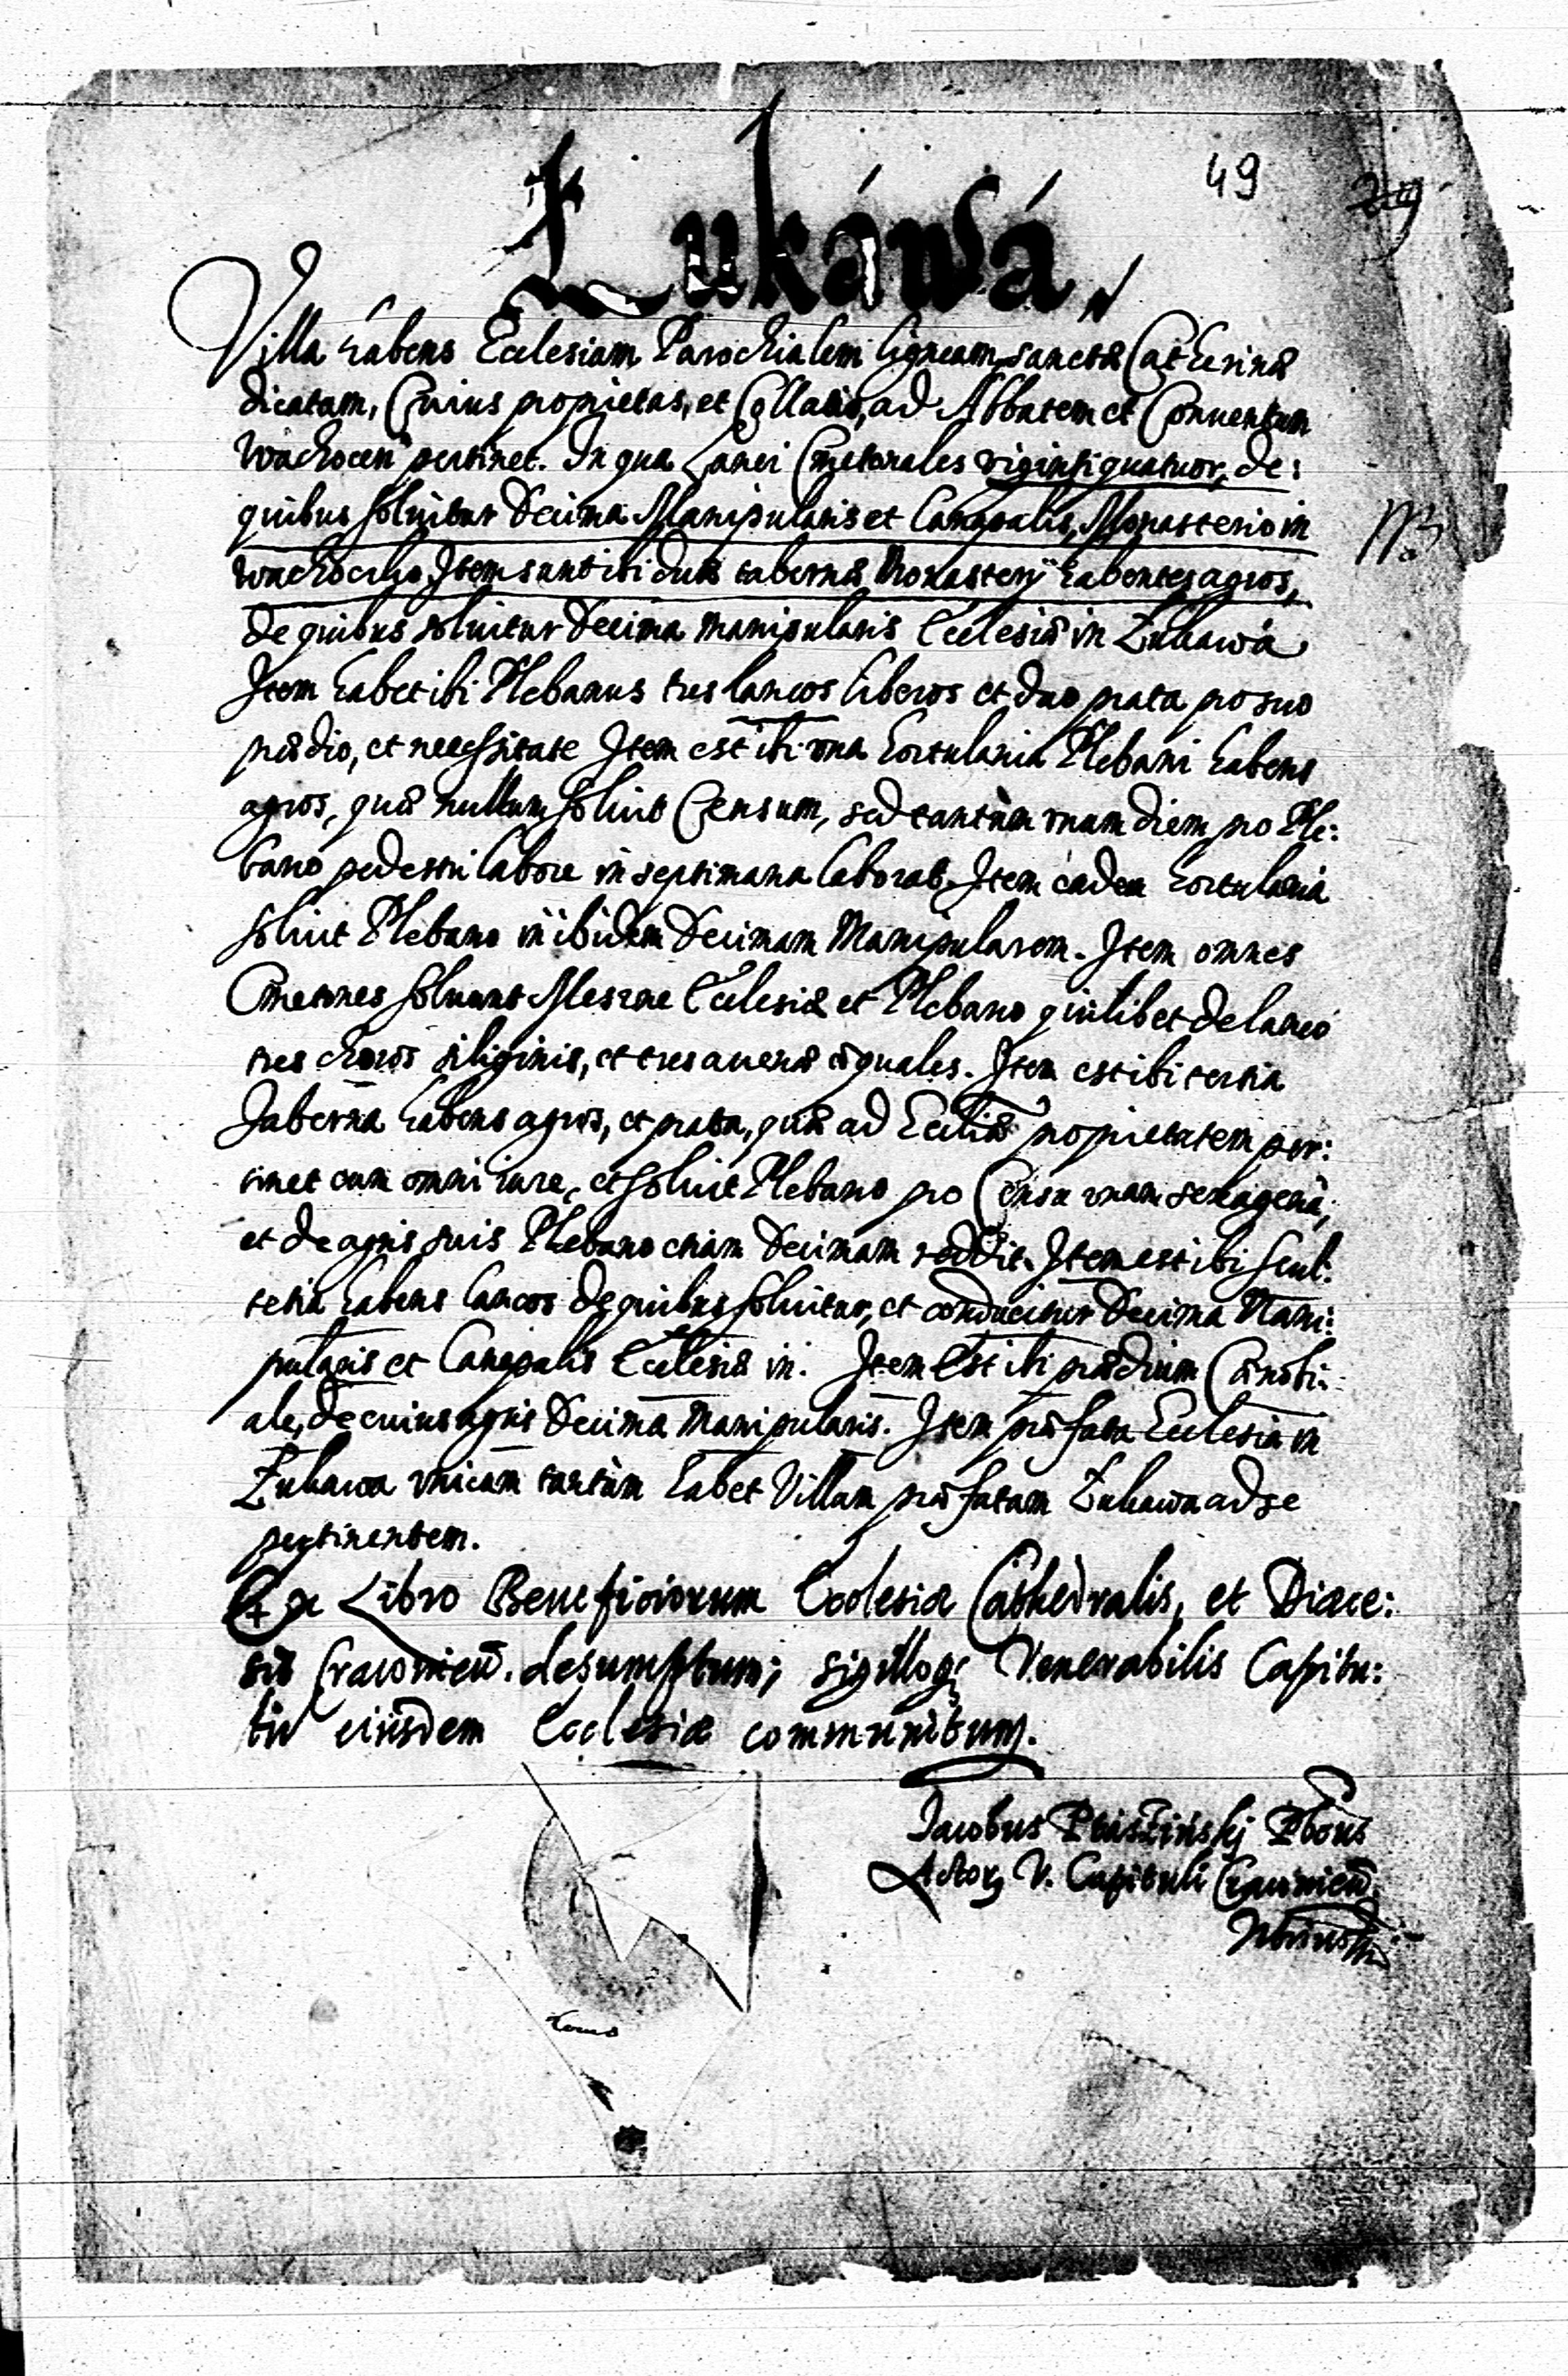 49
Łukáwá
Villa habens Ecclesiam Parochialem ligneam, sanctæ Catherinæ
dicatam, Cuius proprietas, et Collatio, ad Abbatem et Conuentum
Wachocen pertinet. In qua Lanei Cmetonales vigintiquatuor, de:
quibus soluitur Decima Manipularis et Canapalis, Monasterio in
Wachoczko, Item sunt ibi duæ tabernæ Monasterÿ habentes agros,
de quibus soluitur Decima manipularis Ecclesiæ in Łukawá
Item habet ibi Plebanus tres laneos liberos et duo prata pro suo
prædio, et necessitate Item est ibi vna hortulania Plebani habens
agros, quæ nullum soluit Censum, sed tantùm vnam diem pro Ple:
bano pedestri labore in septimana laborat. Item eadem hortulania
soluit Plebano in ibidem Decimam Manipularem. Item omnes
Cmetones soluunt Meszne Ecclesiæ et Plebano quilibet de laneo
tres choros siliginis, et tres auenæ æquales. Item est ibi tertia
Taberna habens agros, et prata, quæ ad Eccliæ proprietatem per:
tinet cum omni iure, et soluit Plebano pro Censu vnam sexagenā,
et de agris suis Plebano etiam Decimam reddit. Item est ibi Scul:
tetia habens laneos de quibus soluitur, et conducitur Decima Mani:
pularis et Canapalis Ecclesiæ in. Item est ibi prædium Cænobi:
ale, de cuius agris Decima manipularis. Item præfata Ecclesia in
Łukawa vnicam tantùm habet Villam præfatam Łukawa ad se
pertinentem.
Ex Libro Beneficiorum Ecclesiæ Cathedralis, et Diæce:
sis Cracouien̄. desumptum; sigilloq; Venerabilis Capitu:
li eiusdem Ecclesiæ communitum.
Jacobus
V. Capituli Cracouien̄.